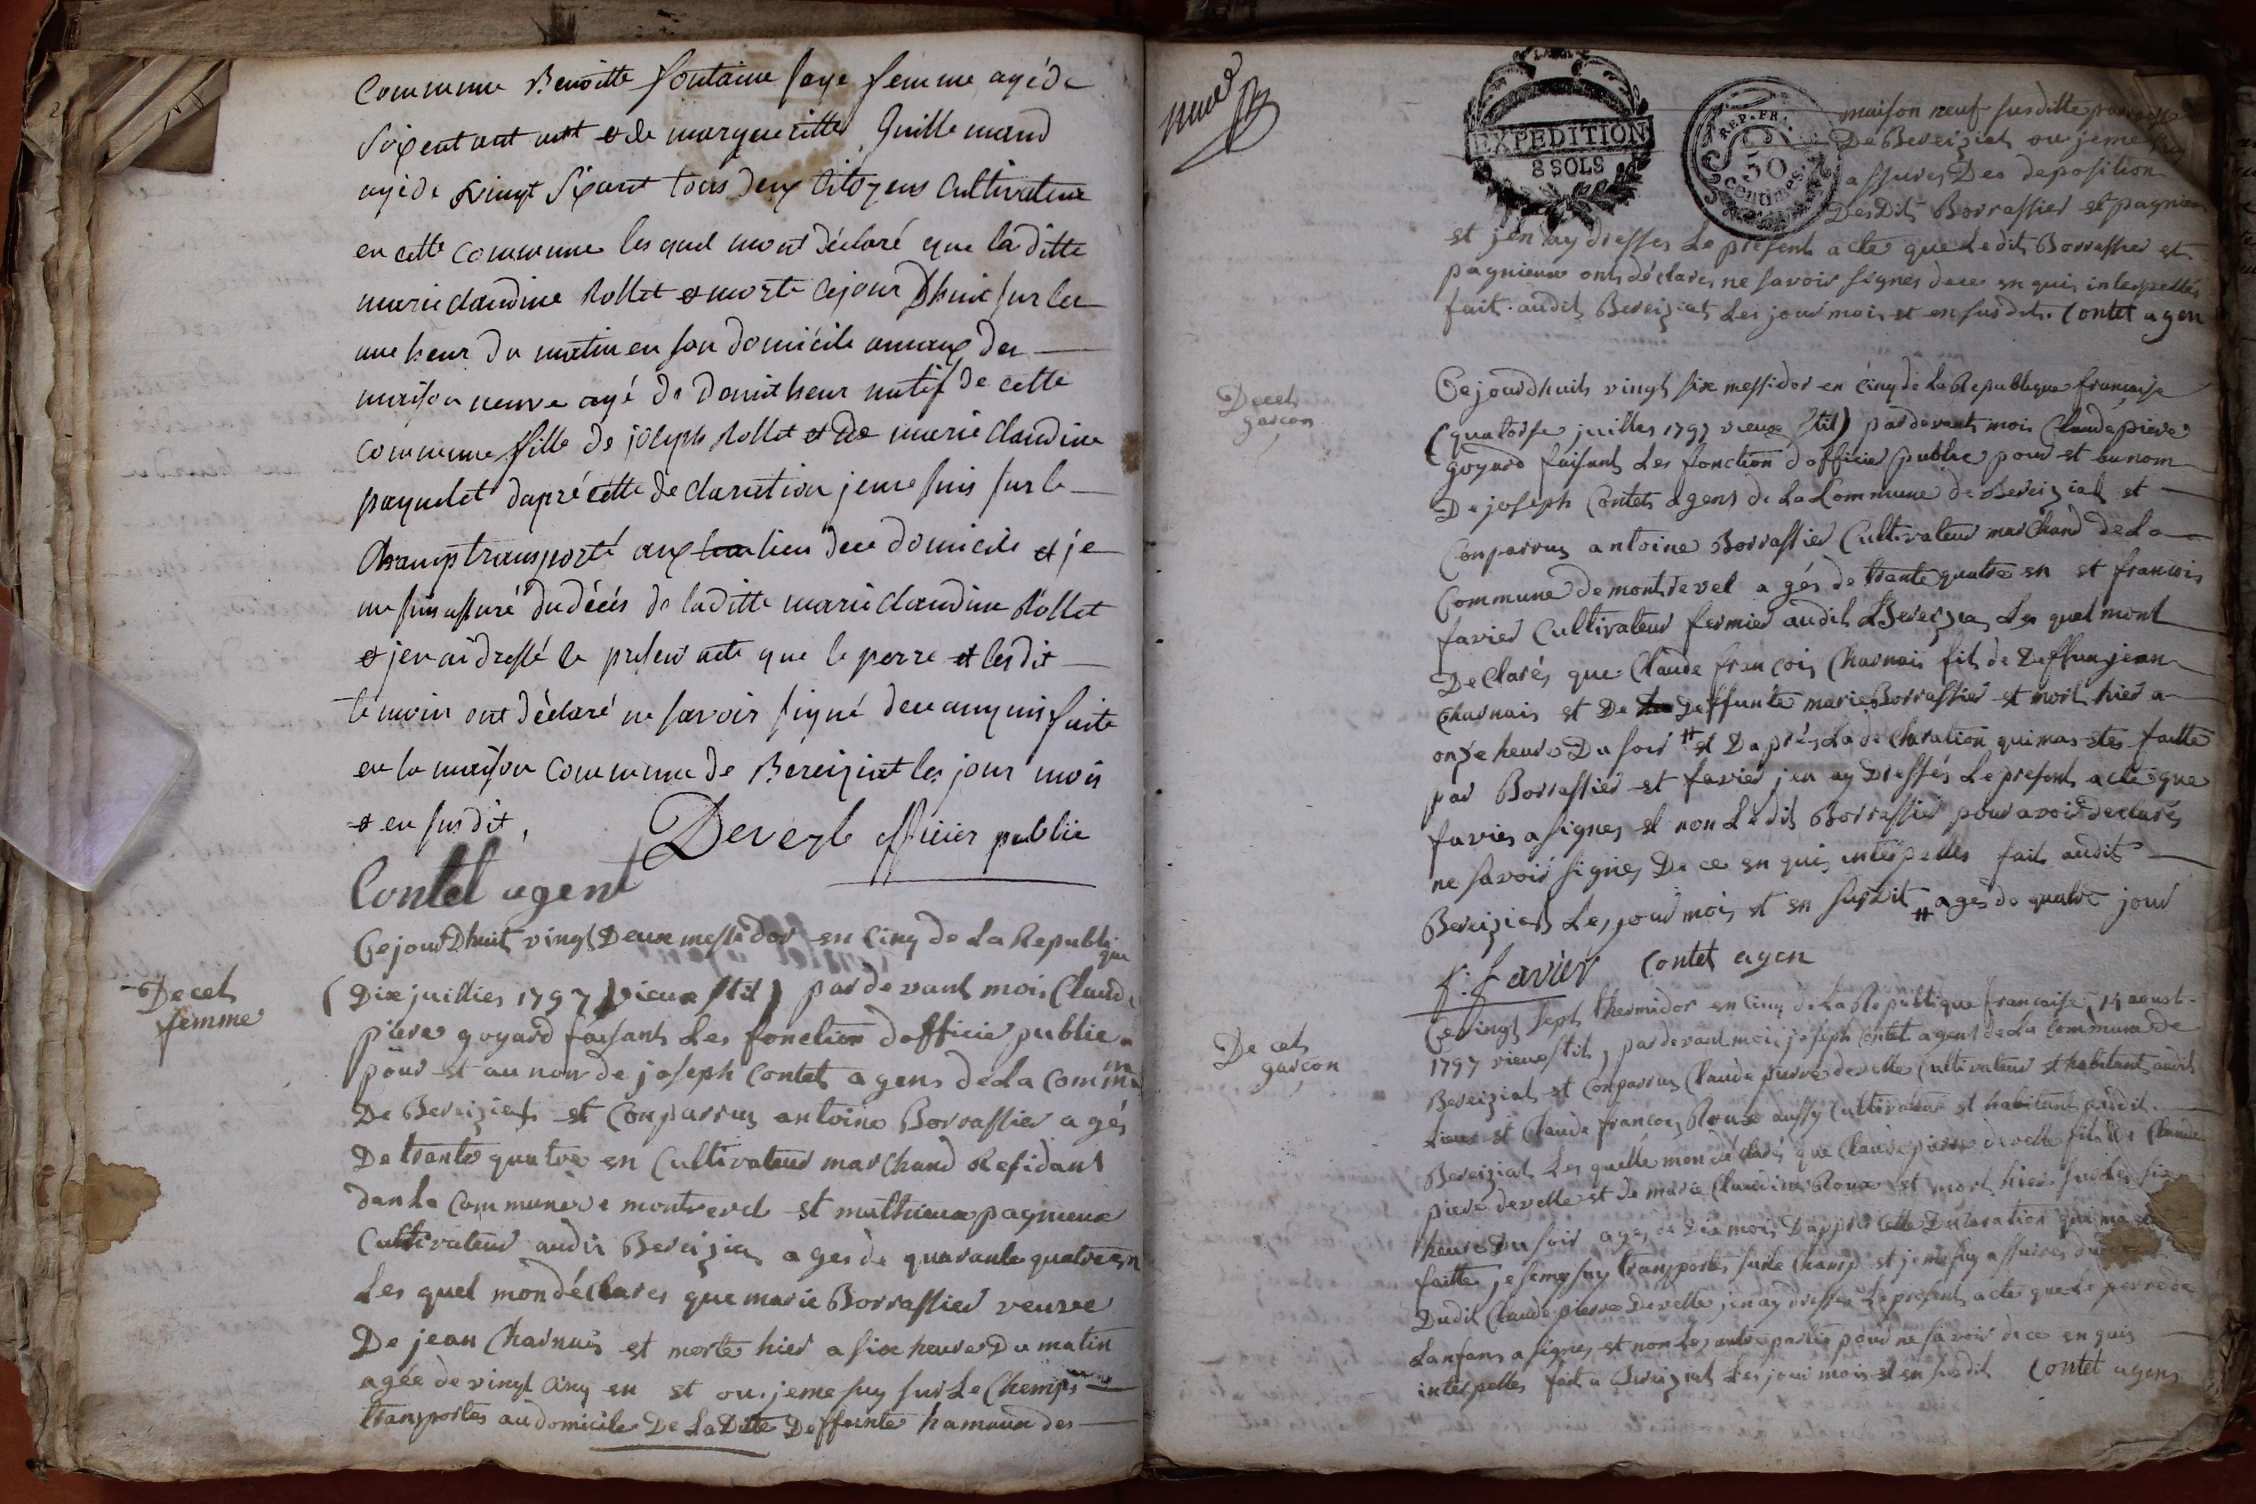 Commune Benoitte fontaine sage femme agé de
soixent ant et de margueritte Guillemaud
agé de vingt sixant tous deux Citoyens Cultivateur
en cette commune les quel mont déclaré que la ditte
marie claudine Rollet et morte ce jour Dhuit sur les
une heur du matin en son domicile amaux des
maison neuve agé de de huit heur natif de cette
commune fille de joseph Rollet et de marie claudine
paquelet dapré cette declaration je me suis sur le
champ transporté aux lieu de ce domicile et je
me suis assuré du décés de laditte marie claudine Rollet
et jen ai dressé le present acte que le perre et lesdit
témoin ont déclaré ne savoir signé de ce anquis faite
en la maison commune de Bereiziat les jour mois
et en susdit,
Deveyle officier public
Contet agent
Decet
femme
Cejourdhuit vingt Deux messidor en Cinq de La Republique
(Dix juillier 1797 vieux stil) par devant mois Claude
piere goyard faisant Les fonction dofficie public
pour et au nom de joseph Contet agens de La Commune
De Bereiziat et Conparrus antoine Borrassier agés
De trante quatre en Cultivateur marchand Residant
dan La Commune de montrevel et mathieux pagnieux
Cultivateur audit Bereiziat ages de quarante quatre en
Les quel mon déclares que marie Borrassier veuve
De jean Charnais et morte hier a six heures Du matin
agée de vingt cinq en et ou je me suy sur Le Chemps
transportes au domicile De La Ditte Deffunte hamaux des
EXPEDITION
8 SOLS
REP. FRA.
50
centimes
maison neuf susditte
De Bereiziat ou je me
assures Des deposition
Desdits Borrassier et pagnieux
et jen ay dresses Le present acte que Ledit Borrassier et
pagnieux ont déclares ne savoir signes de ce en quis interpelles
fait audit Bereiziat Les jour mois et en susdit. Contet agen
Decet
garcon
Cejourdhuit vingt six messidor en cinq de La Republique francaise
(quatorse juilles 1797 vieux stil) par devant mois Claude piere
goyard faisant Les fonction dofficier public pour et au nom
De joseph Contet agens de La Commune de Bereiziat et
Conparrus antoine Borrassier Cultivateur marchand de La
Commune de montrevel agés de trante quatre en et francois
favier Cultivateur fermier audit Bereiziat Les quel mont
Declarés que Claude francois Charnais fils de Deffun jean
Charnais et De Deffunte marie Borrassier et mort hier a
onze heures Du soir # et Daprés La declaration qui mas etes faitte
par Borrassier et favier jen ay Dressés Le present acte que
favier a signes et non Ledit Borrassier pour avoir declarés
ne savoir signes De ce en quis interpelles fait audit
Bereiziat Les jour mois et en susdit # agés de quatre jour
f. favier Contet agen
De cet
garcon
Ce vingt sept thermidor en Cinq de La Republique francaise 14 aoust
1797 vieux stil, par devant moi joseph Contet agent de La Commune de
Bereiziat et Conparrus Claude pierre develle Cultivateur et habitant audit
Lieux et Claude francois Roux aussy Cultivateur et habitant audit
Bereiziat Les quelle mon déclarés que Claude pierre develle fils de Claude
piere develle et de marie Claudine Roux et mort hier sur Les six
heure Du soir ages de dix mois Dappres Cette Declaration qui ma
faitte je seme suy transportés sur le Champ et je me suy assures du
Dudit Claude pierre Develle jen ay dresses Le present acte que Le perre de
Lanfans a signes et non Les autre parties pour ne savoir de ce en quis
interpelles fait a Bereiziat Les jour mois et en susdit Contet agens